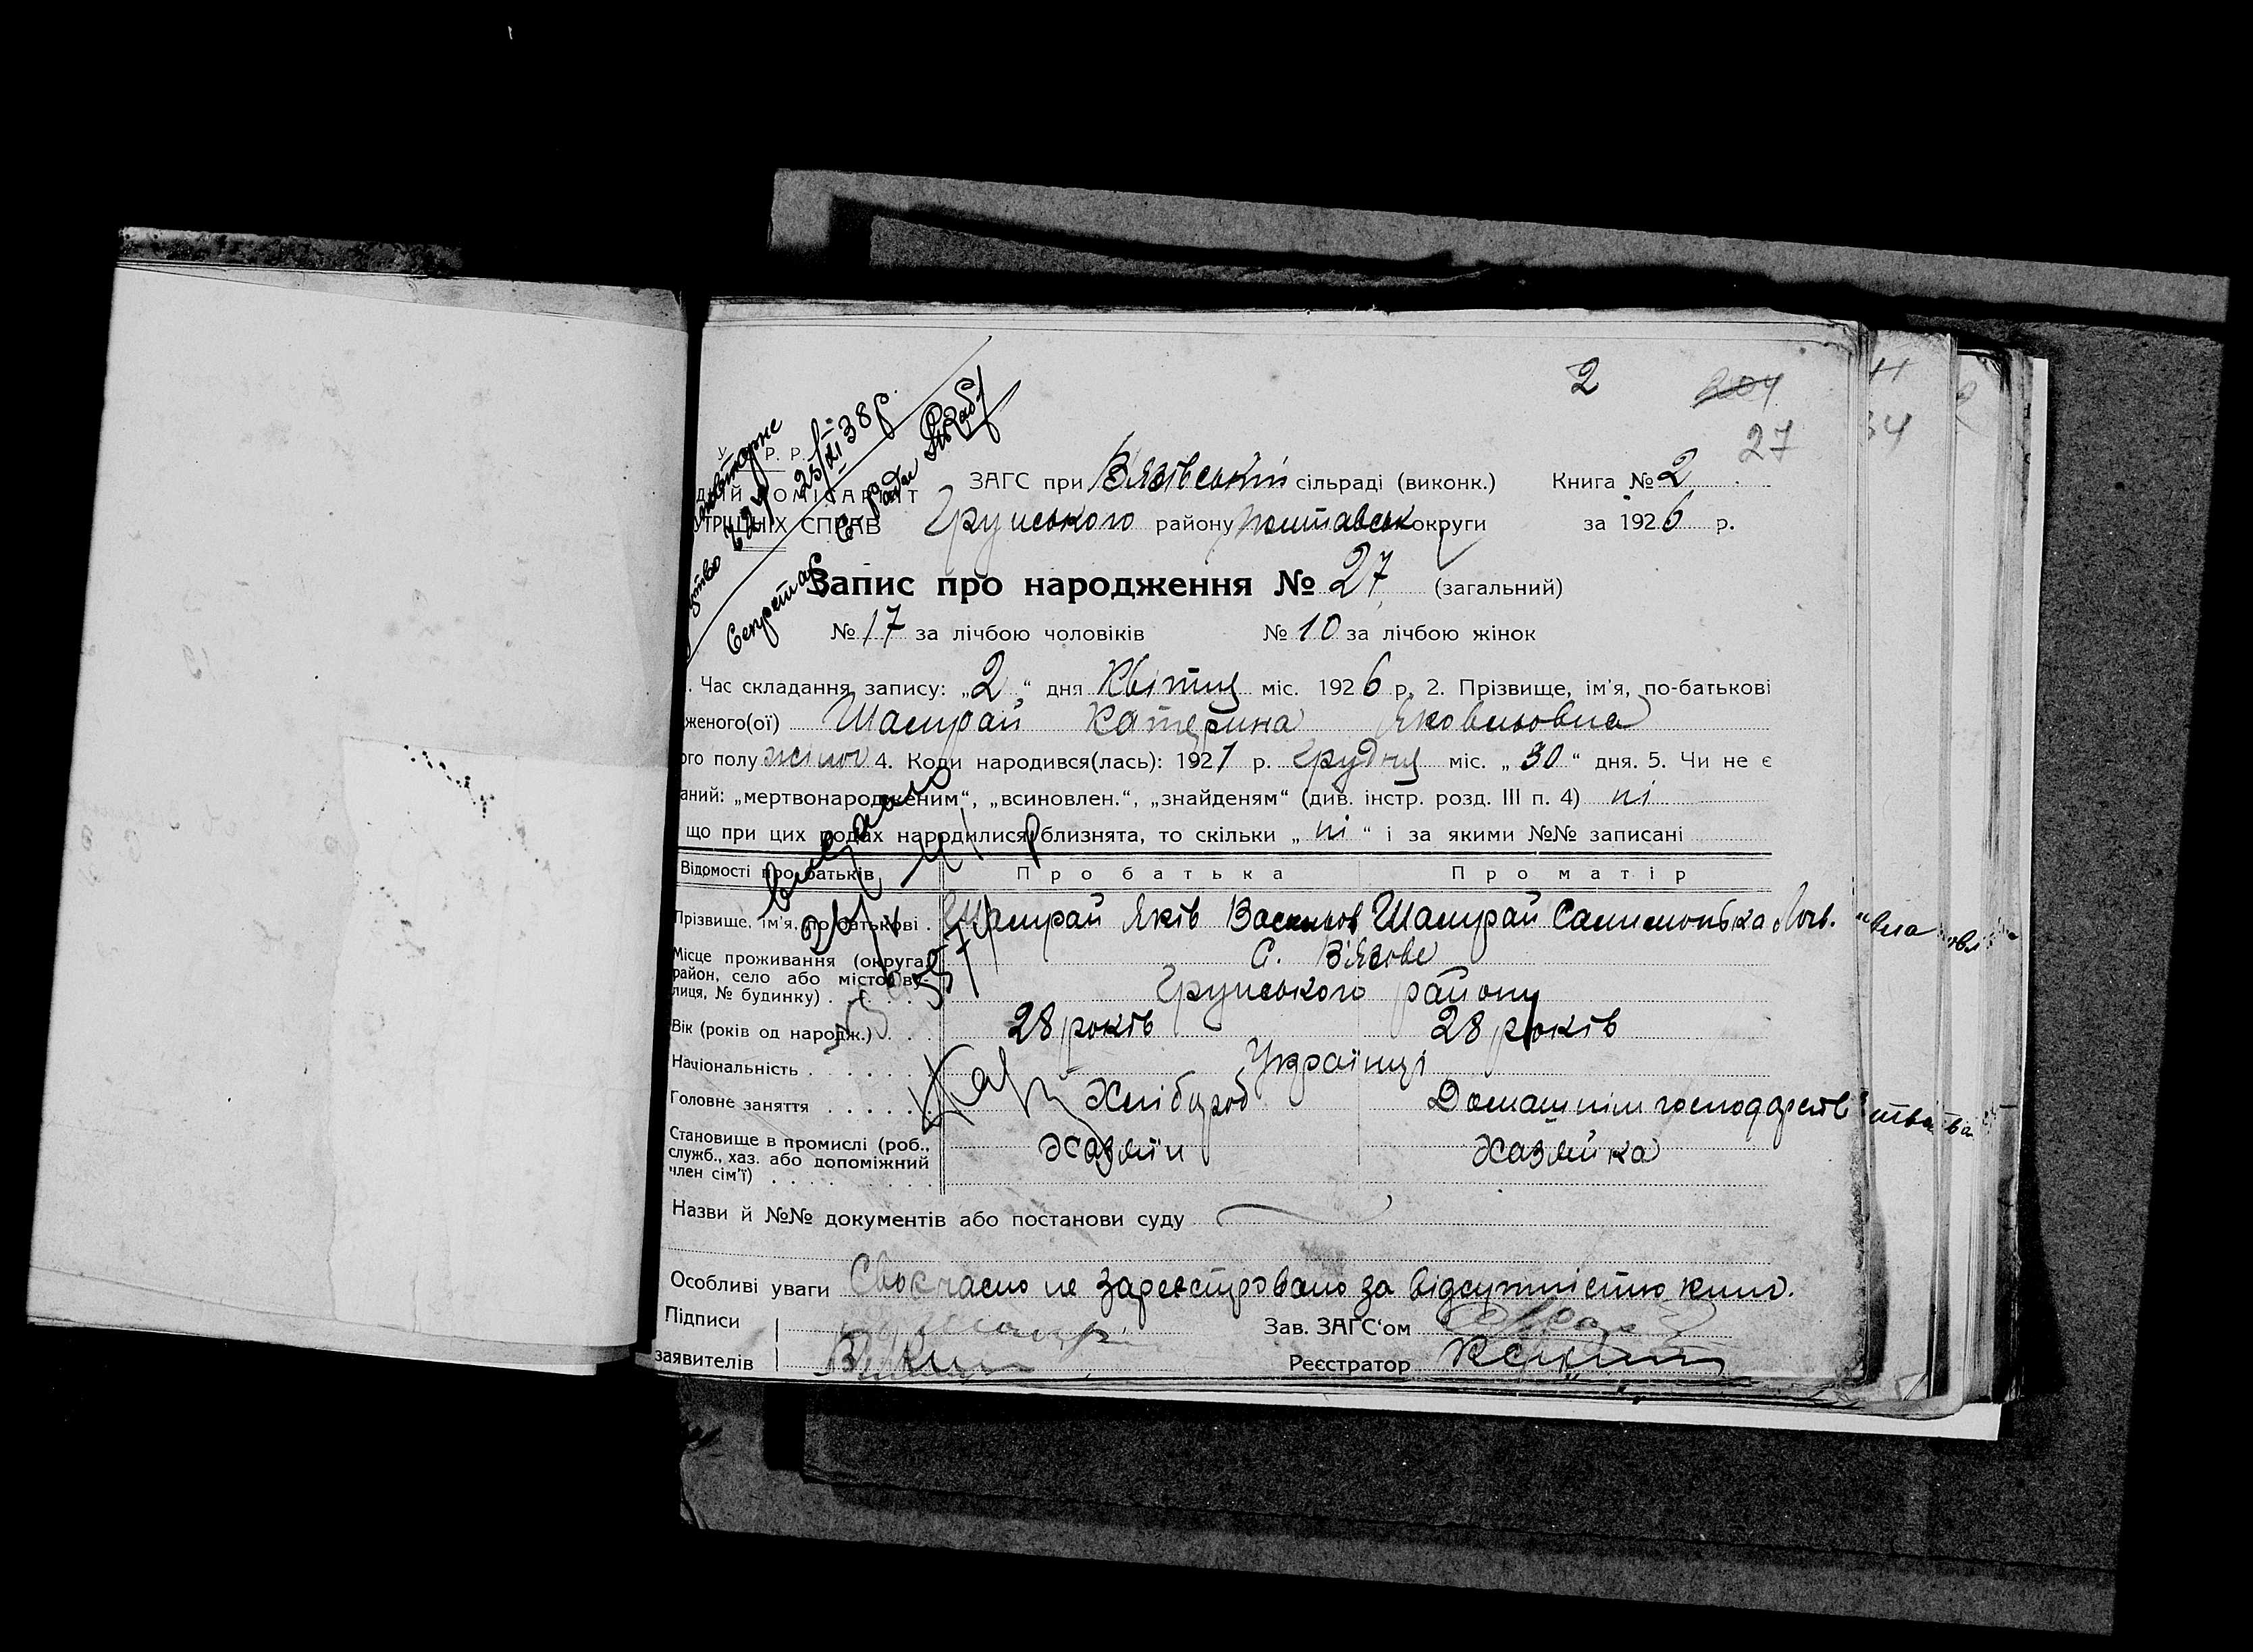 2
204
27
34
У Р. Р.
25/XI 38 р.
ЗАГС при Вʼязівській сільраді (виконк.) Книга № 2
ТРІШНІХ СПРАВ Грунського району Полтавськ округи за 1926 р.
Секретар
Запис про народження № 27 (загальний)
№ 17 за лічбою чоловіків № 10 за лічбою жінок
. Час складання запису: „2“ дня Квітня міс. 1926 р. 2. Прізвище, ім'я, по-батькові
женого(ої) Шамрай Катерина Яковльовна
ого полу жіноч 4. Коли народився(лась): 1921 р. Грудня міс. „30“ дня. 5. Чи не є
аний: „мертвонародженим“, „всиновлен.“, „знайденям“ (див. інстр. розд. III п. 4) ні
що при цих родах народилися близнята, то скільки „ні“ і за якими №№ записані
Відомості про батьків Про батька Про матір
Прізвище, ім'я, по батькові . Шамрай Яків Васильов Шамрай
Місце проживання (округа, район, село або місто, вулиця, № будинку) . . . . С. Вʼязове
Грунського району
Вік (років од народж.) . . . 28 років 28 років
Національність . . . . . . . Українці
Головне заняття . . . . . . Хлібороб Домашнім господарств
Становище в промислі (роб., служб., хаз. або допоміжний член сім'ї) . . . . Хазяїн Хазяйка
Назви й №№ документів або постанови суду
Особливі уваги Своєчасно не зареєстровано за відсутністю книг.
Підписи Зав. ЗАГС‘ом
заявителів Реєстратор